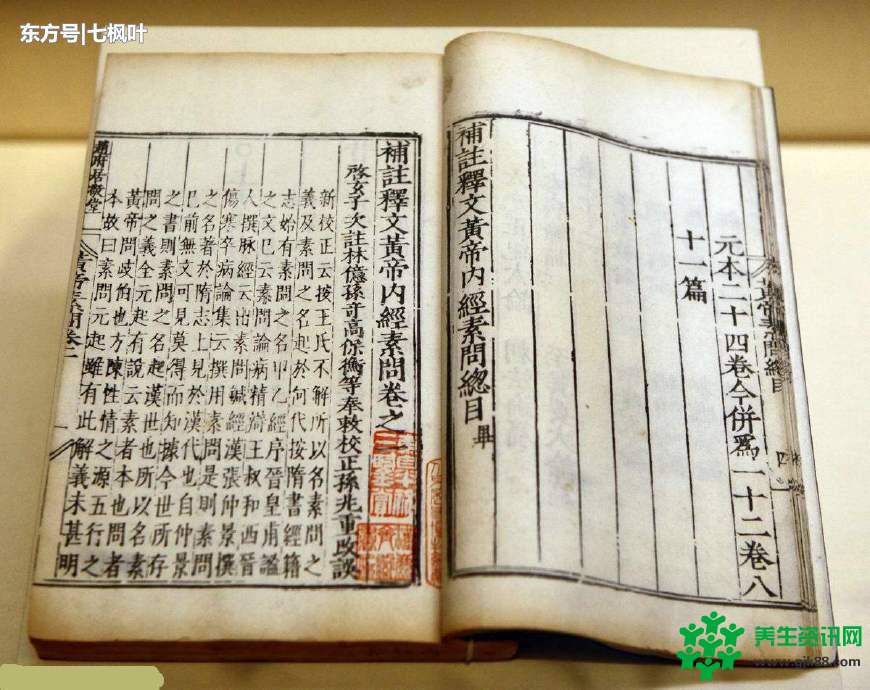 东方号|七枫叶
黃帝素問總目
元本二十四卷今併爲一十二卷八
十一篇
補註釋文黃帝內經素問總目 畢
補註釋文黃帝內經素問卷之一
啓玄子次註林億孫奇高保衡等奉敕校正孫兆重改誤
新校正云按王氏不解所以名素問之
義及素問之名起於何代按隋書經籍
志始有素問之名甲乙經序晉皇甫謐
之文已云素問論病精辯王叔和西晉
人撰脉經云出素問鍼經漢張仲景撰
傷寒卒病論集云撰用素問是則素問
之名著於隋志上見於漢代也自仲景
已前無文可見莫得而知據今世所存
之書則素問之名起漢世也所以名素
問之義全元起有說云素者本也問者
黃帝問歧伯也方陳性情之源五行之
本故曰素問元起雖有此解義未甚明
趙府居敬堂
黃帝素問卷一
养生资讯网
www.gjk88.com